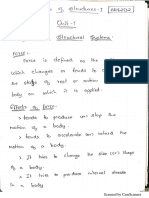 of Structures-I
Unit-I
Structural Systems
Force:-
Force is defined as the
which changes or tends to c
the state of rest or motion
body on which it is applied.
Effects of force:-
→ tends to produce (or) stop the
motion of a body.
→ tends to accelerate (or) retard the
motion of a body.
→ It tries to change the size (or) shape
of a body.
→ It tries to produce internal stresses
in a body.
Scanned by CamScanner